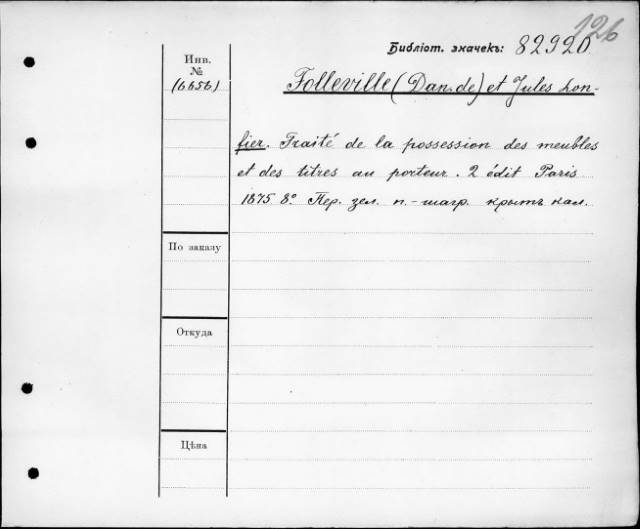 126
Библіот. значекъ: 82920
Инв.
№
(6656)
Folleville (Dan. de) et Jules Lon-
fier. Traité de la possession des meubles
et des titres au porteur. 2 édit Paris
1875 8° Пер. зел. п.-шагр. крытъ кал.
По заказу
Откуда
Цѣна